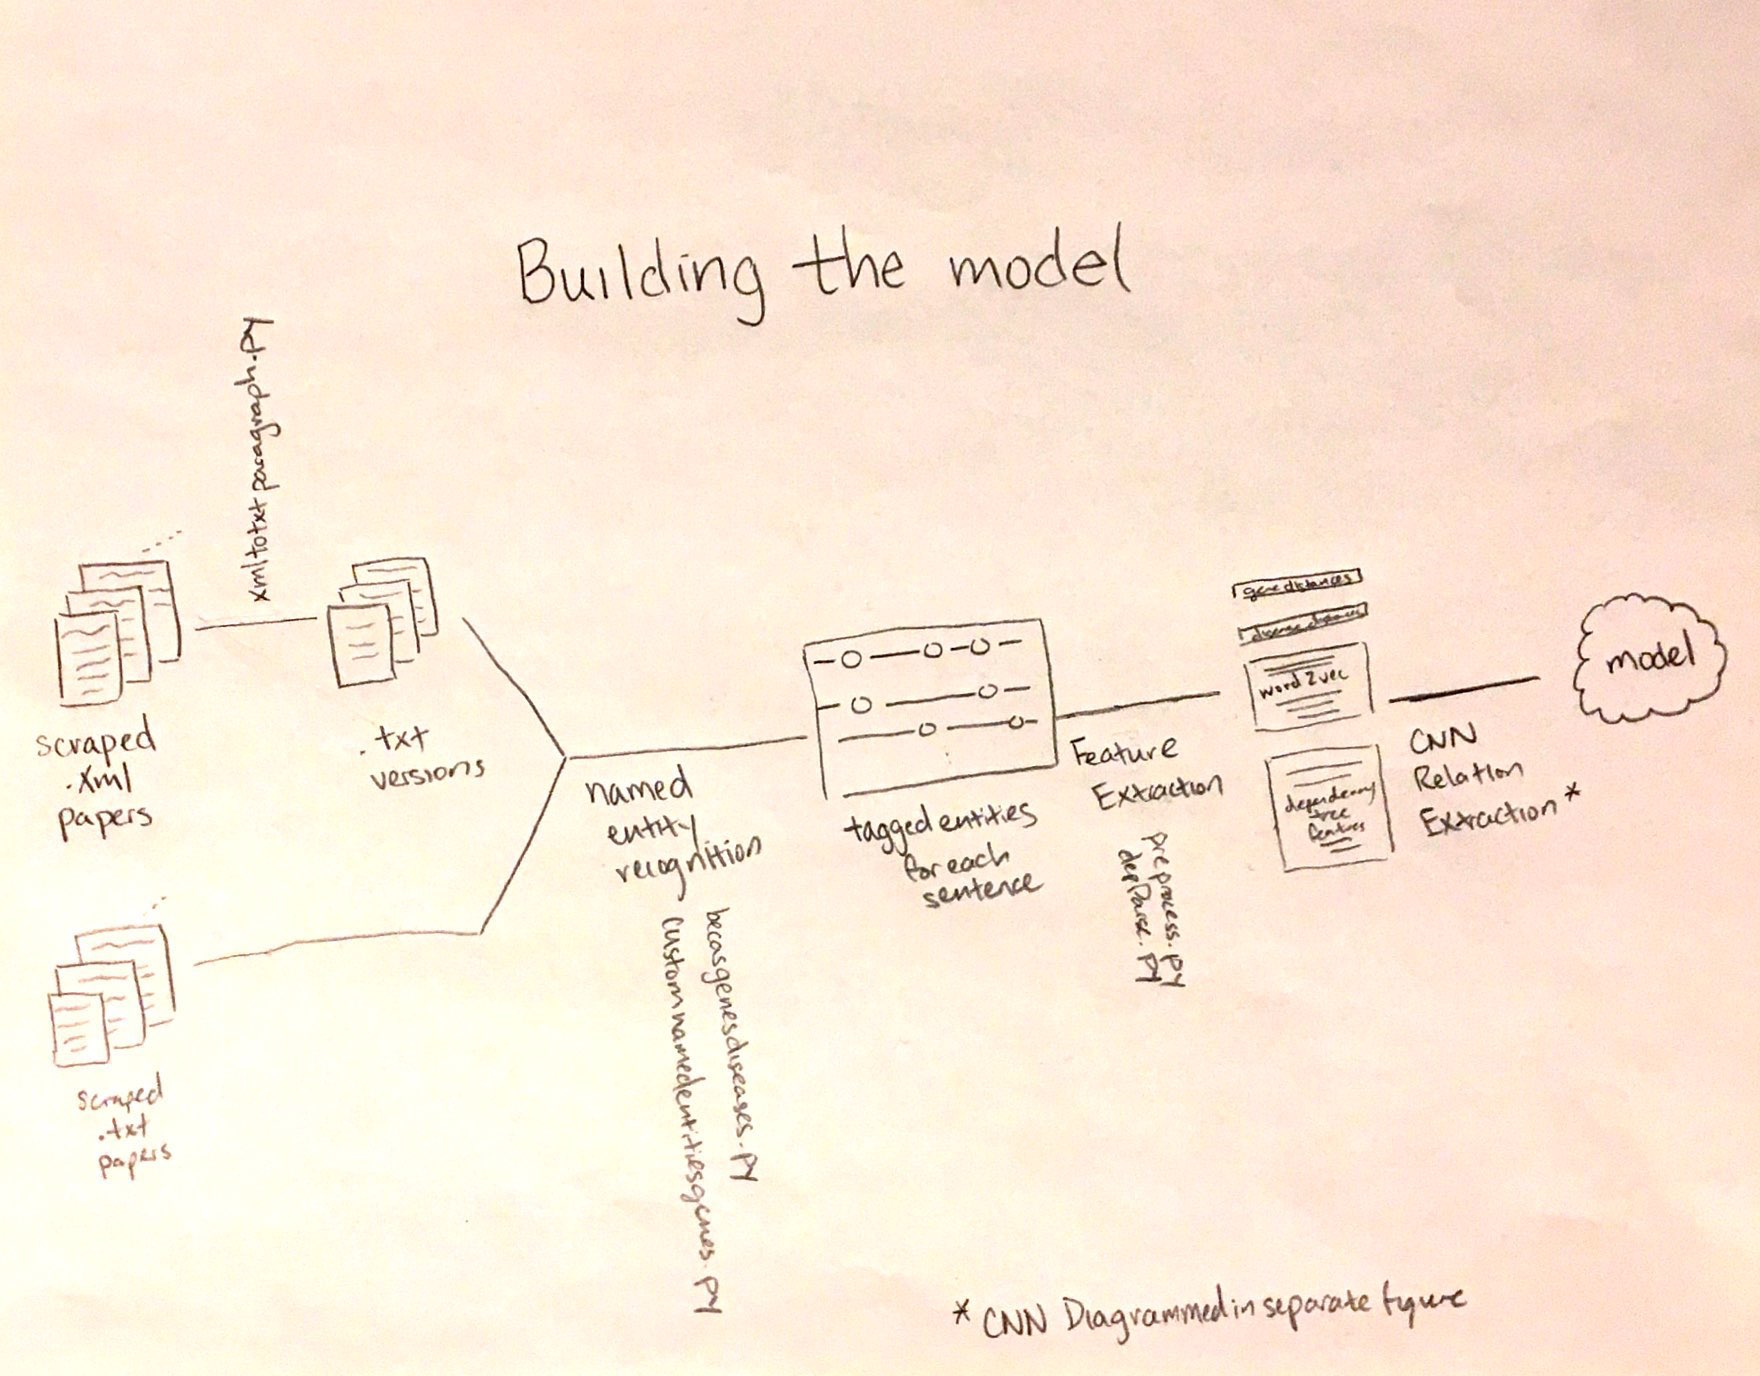 Building the model
xmltotxtparagraph.py
scraped
.xml
papers
.txt
versions
scraped
.txt
papers
named
entity
recognition
becasgenesdiseases.py
customnamedentitiesgenes.py
tagged entities
for each
sentence
Feature
Extraction
preprocess.py
depParse.py
gene distances
disease distances
word2vec
dependency
tree
features
CNN
Relation
Extraction*
model
* CNN Diagrammed in separate figure